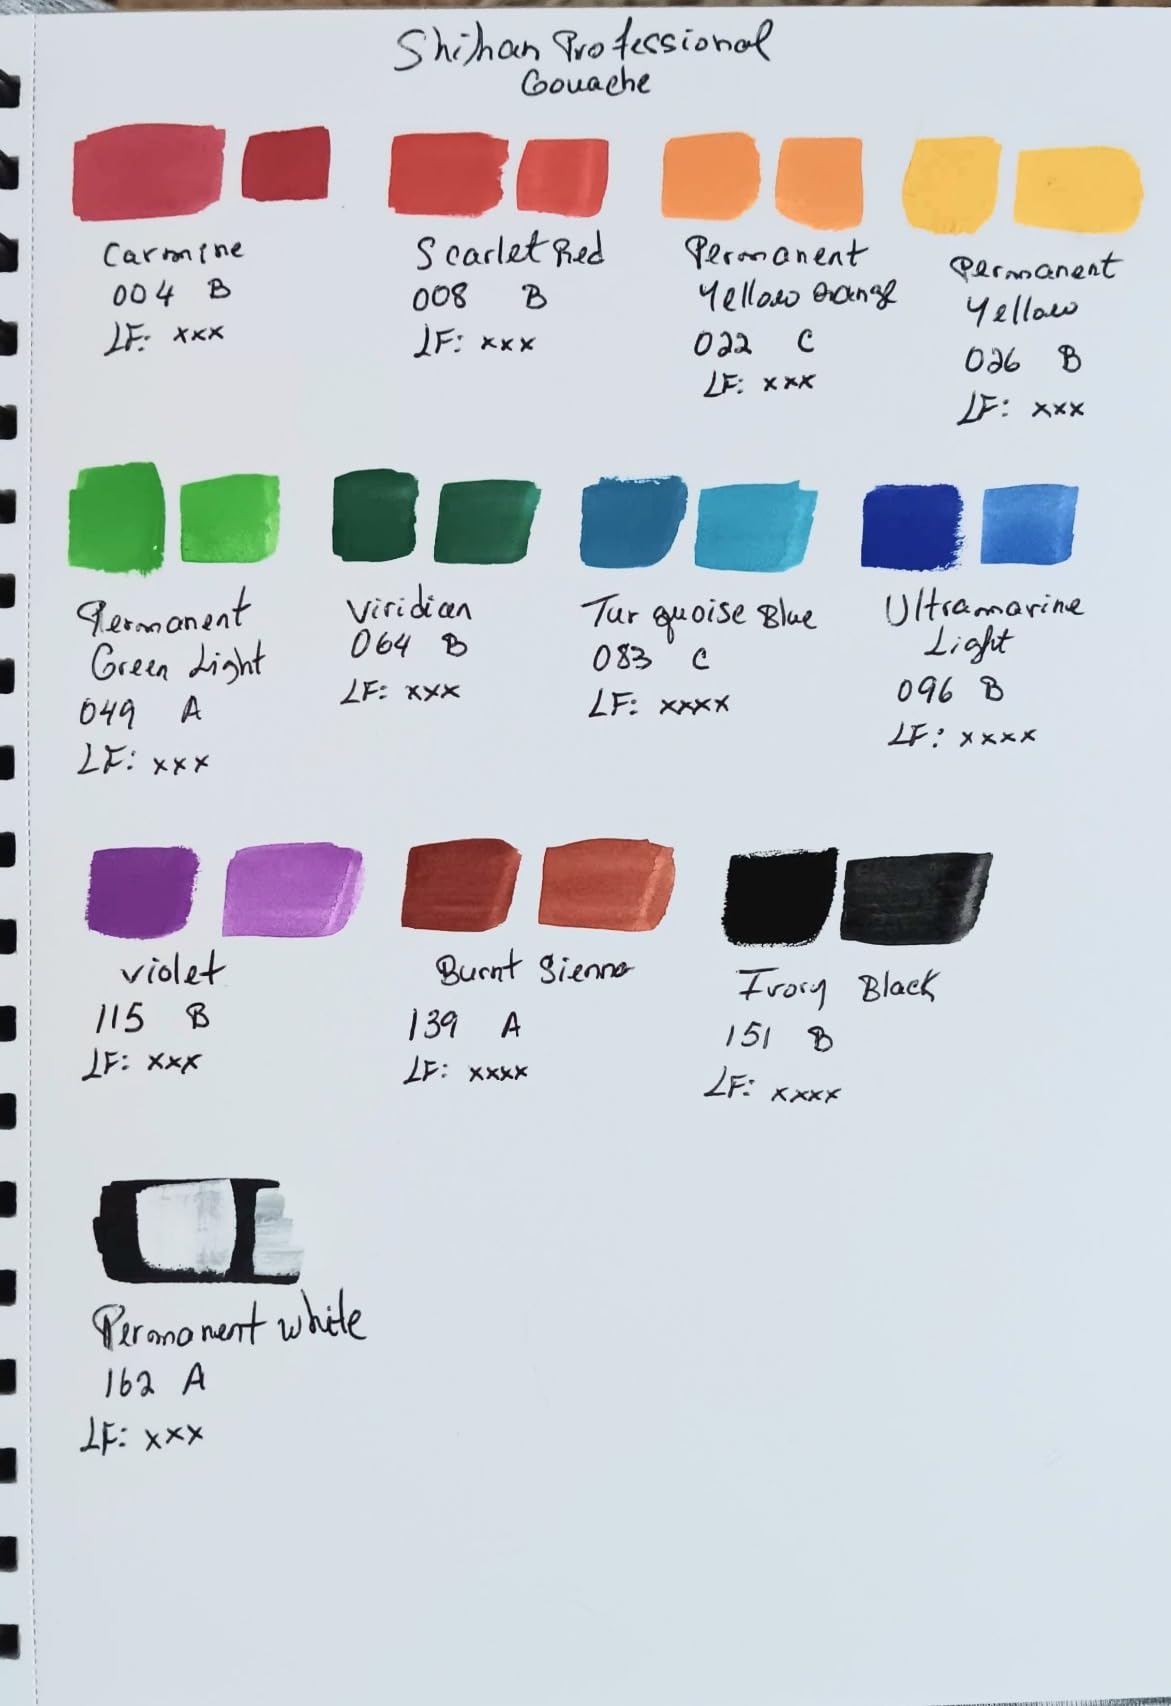 Shihan Professional
Gouache
Carmine
004 B
LF: xxx
Scarlet Red
008 B
LF: xxx
Permanent
Yellow Orange
022 C
LF: xxx
Permanent
Yellow
026 B
LF: xxx
Permanent
Green Light
049 A
LF: xxx
Viridian
064 B
LF: xxx
Turquoise Blue
083 C
LF: xxxx
Ultramarine
Light
096 B
LF: xxxx
Violet
115 B
LF: xxx
Burnt Sienna
139 A
LF: xxxx
Ivory Black
151 B
LF: xxxx
Permanent white
162 A
LF: xxx